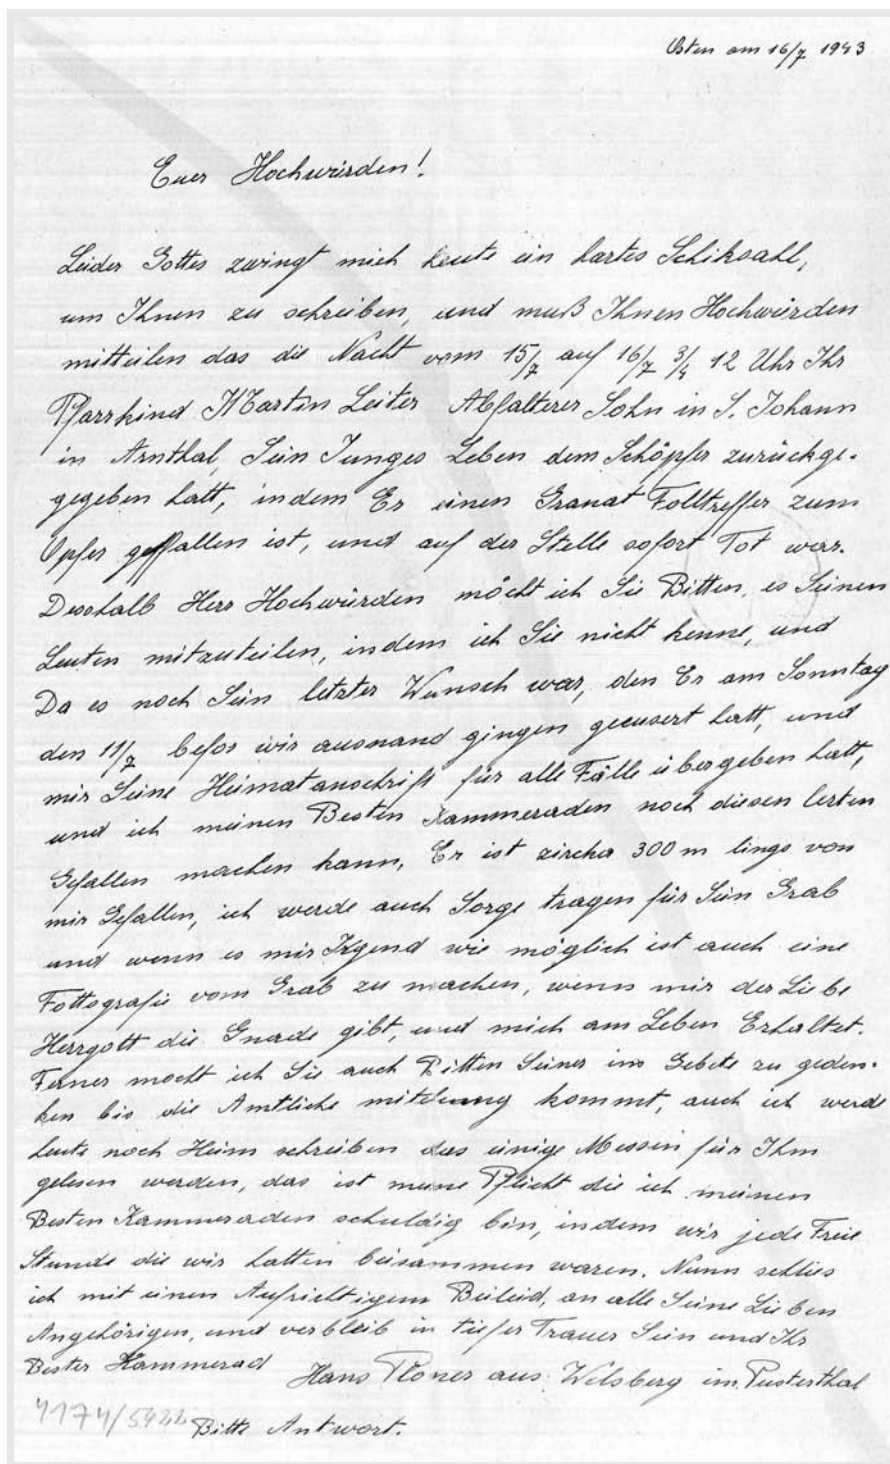 Osten am 16/7 1943
Euer Hochwürden!
Leider Gottes zwingt mich heute ein hartes Schiksahl,
um Ihnen zu schreiben, und muß Ihnen Hochwürden
mitteilen das die Nacht vom 15/7 auf 16/7 3/4 12 Uhr Ihr
Pfarrkind Martin Leiter Abfalterer Sohn in S. Johann
in Arnthal, Sein Junges Leben dem Schöpfer zurückge-
gegeben hatt, indem Er einen Granat Folltreffer zum
Opfer gefallen ist, und auf der Stelle sofort Tot war.
Desshalb Herr Hochwürden möcht ich Sie Bitten, es Seinen
Leuten mitzuteilen, indem ich Sie nicht kenne, und
Da es noch Sein letzter Wunsch war, den Er am Sonntag
den 11/7 befor wir ausnand gingen geeusert hatt, und
mir Seine Heimatanschrift für alle Fälle übergeben hatt,
und ich meinen Besten Kammeraden noch diesen lezten
Gefallen machen kann, Er ist zircka 300 m lings von
mir Gefallen, ich werde auch Sorge tragen für Sein Grab
und wenn es mir Irgend wie möglich ist auch eine
Fottografie vom Grab zu machen, wenn mir der Liebe
Herrgott die Gnade gibt, und mich am Leben Erhaltet.
Ferner mocht ich Sie auch Bitten Seiner im Gebete zu geden-
ken bis die Amtliche kommt, auch ich werde
heute noch Heim schreiben das einige Messen für Ihm
gelesen werden, das ist meine Pflicht die ich meinen
Besten Kammeraden schuldig bin, indem wir jede Freie
Stunde die wir hatten beisammen waren. Nunn schlies
ich mit einen Aufrichtigem Beileid, an alle Seine Lieben
Angehörigen, und verbleib in tiefer Trauer Sein und Ihr
Bester Kammerad Hans Ploner aus Welsberg im Pusterthal
4174/5422 Bitte Antwort.